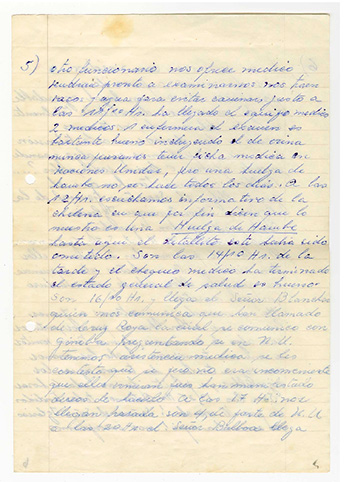 5) otro funcionario nos ofrece medico
vendrían pronto a examinarnos nos traen
vasos y agua para evitar
las 10/30 Hs. ha llegado el equipo medico
2 medicos 1 enfermera el chequeo es
bastante bueno incluyendo el de orina
nunca pensamos tener ficha medica en
Naciones Unidas, pero una huelga de
hambre no se hace todos los dias. A las
12 Hs. escuchamos informativo de la
chilena en que por fin dicen que lo
nuestro es una Huelga de Hambre
hasta aquí el detallito este había sido
omitido. Son las 14/10 Hs. de la
tarde y el chequeo medico ha terminado
el estado general de salud es bueno
Son 16/00 Hs. y llega el Señor Blanchet
quien nos comunica que han llamado
de Cruz Roja la cual se comunico con
Ginebra preguntando si en N.U.
tenemos asistencia medica se les
contesta que si
que ellos
deseos de A las 17 Hs. nos
llegan 4 de parte de N.U
a las 20 el Señor Balboa llega